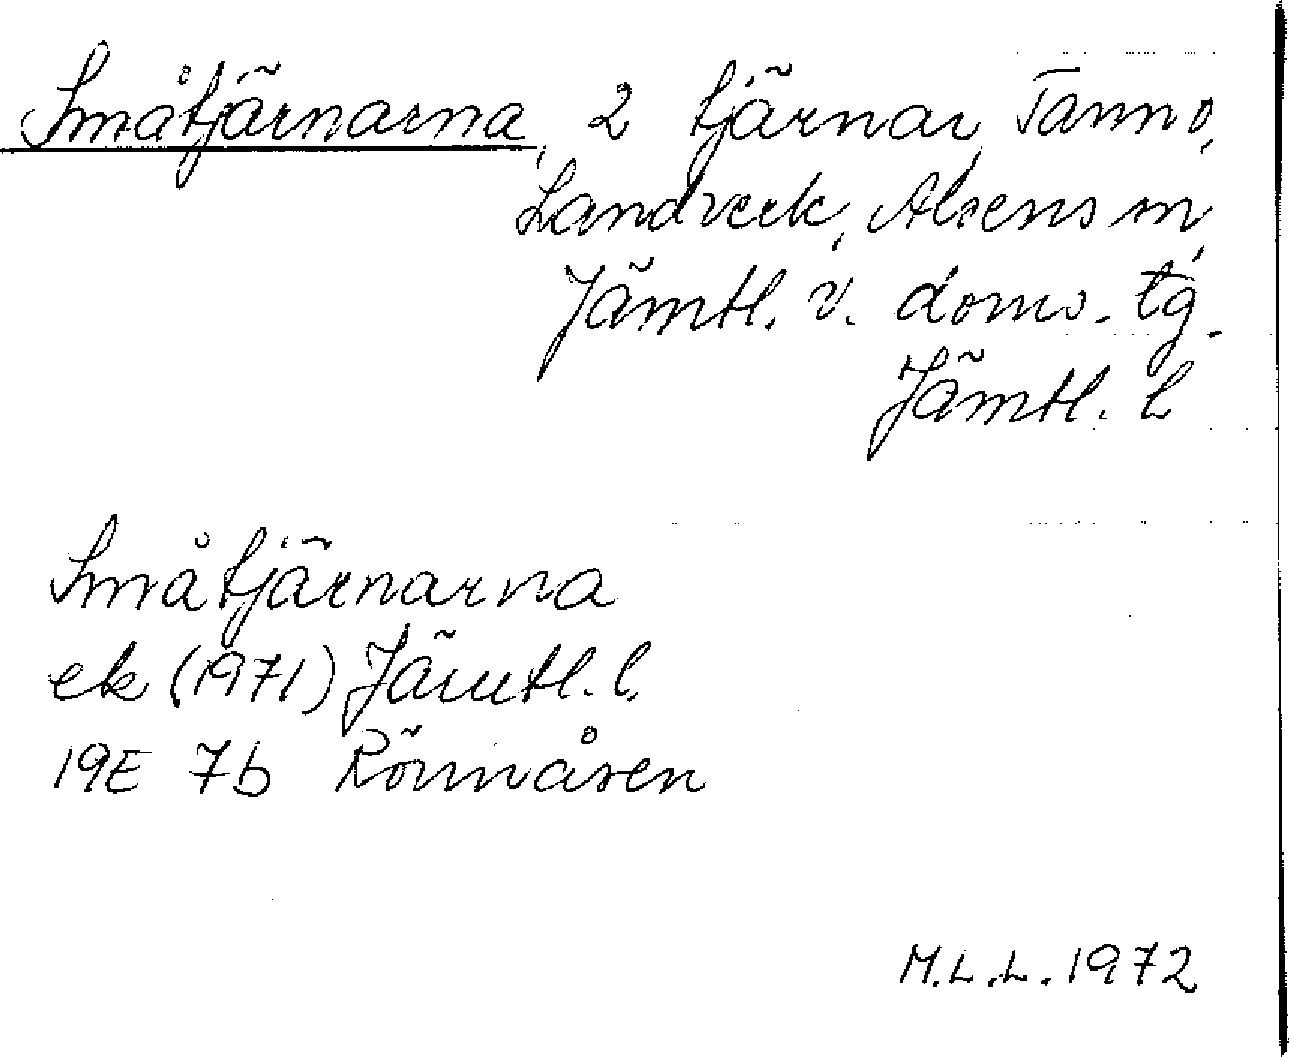 Småtjärnarna, 2 tjärnar, Tanno,
Landverk, Alsens sn,
Jämtl. v. doms. tg.
Jämtl. l
Småtjärnarna
ek (1971) Jämtl. l.
19E 7b Rönnåsen
M.L.L. 1972